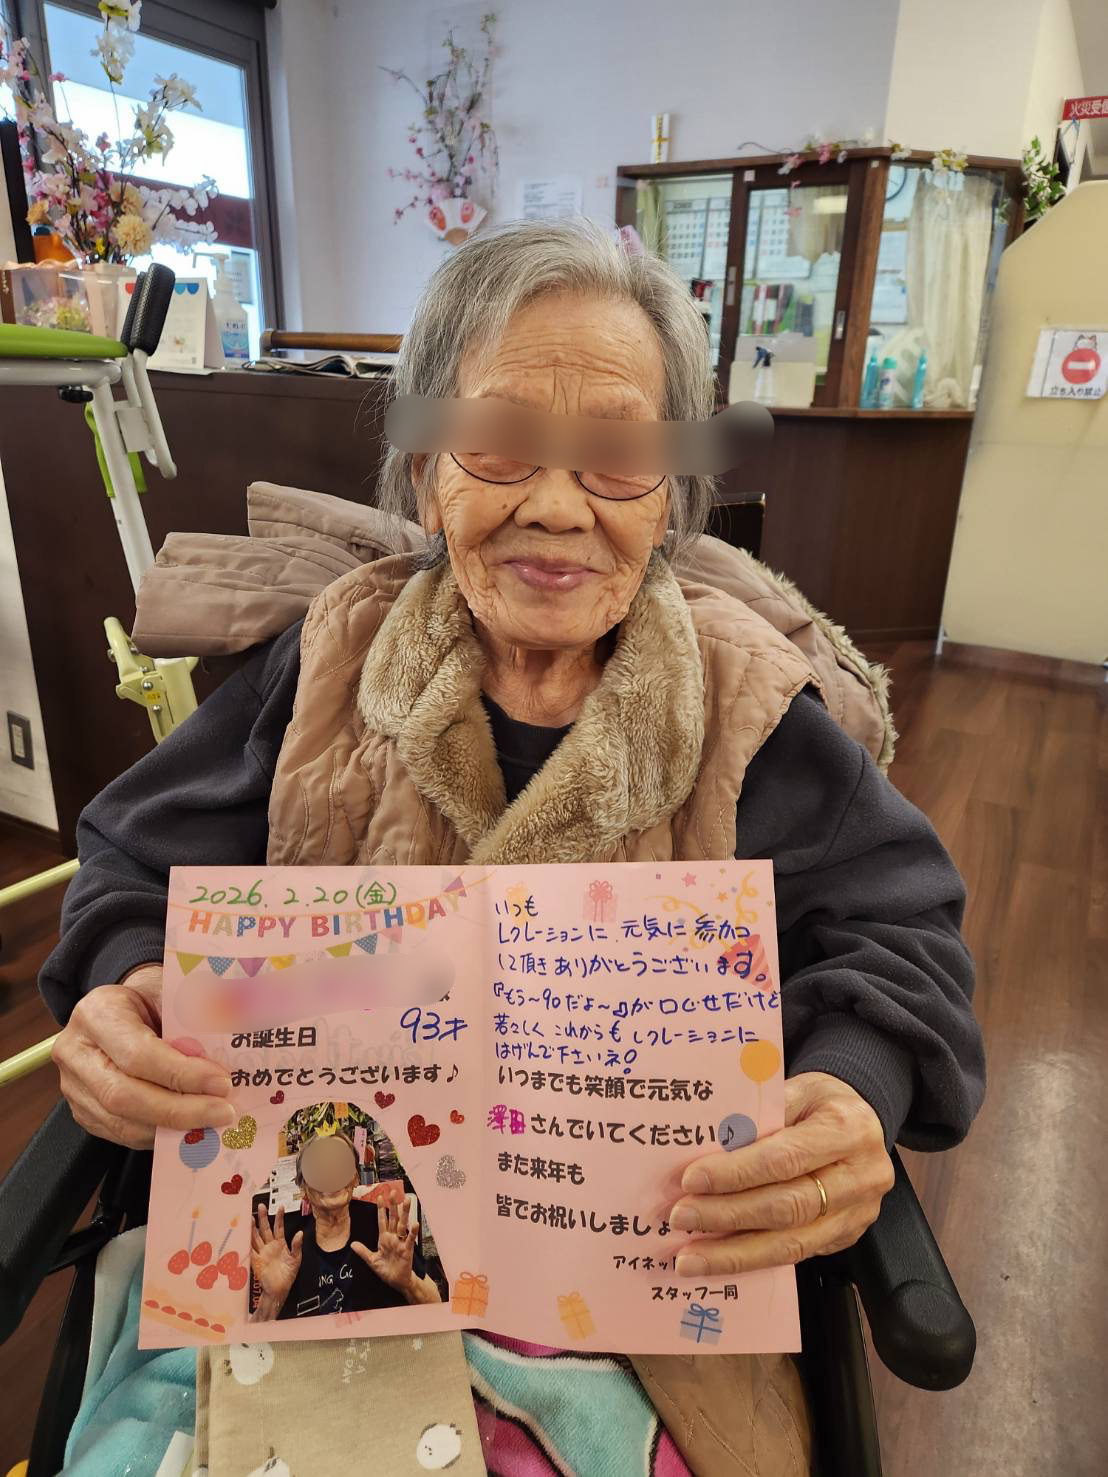 2026.2.20(金)
HAPPY BIRTHDAY
お誕生日 93才
おめでとうございます♪
いつも
レクレーションに、元気に参加
して頂きありがとうございます。
『もう~90だよ~』が口ぐせだけど
若々しくこれからもレクレーションに
はげんで下さいネ!
いつまでも笑顔で元気な
澤田さんでいてください♪
また来年も
皆でお祝いしましょ
アイネッ
スタッフ一同
火災受信
立ち入り禁止